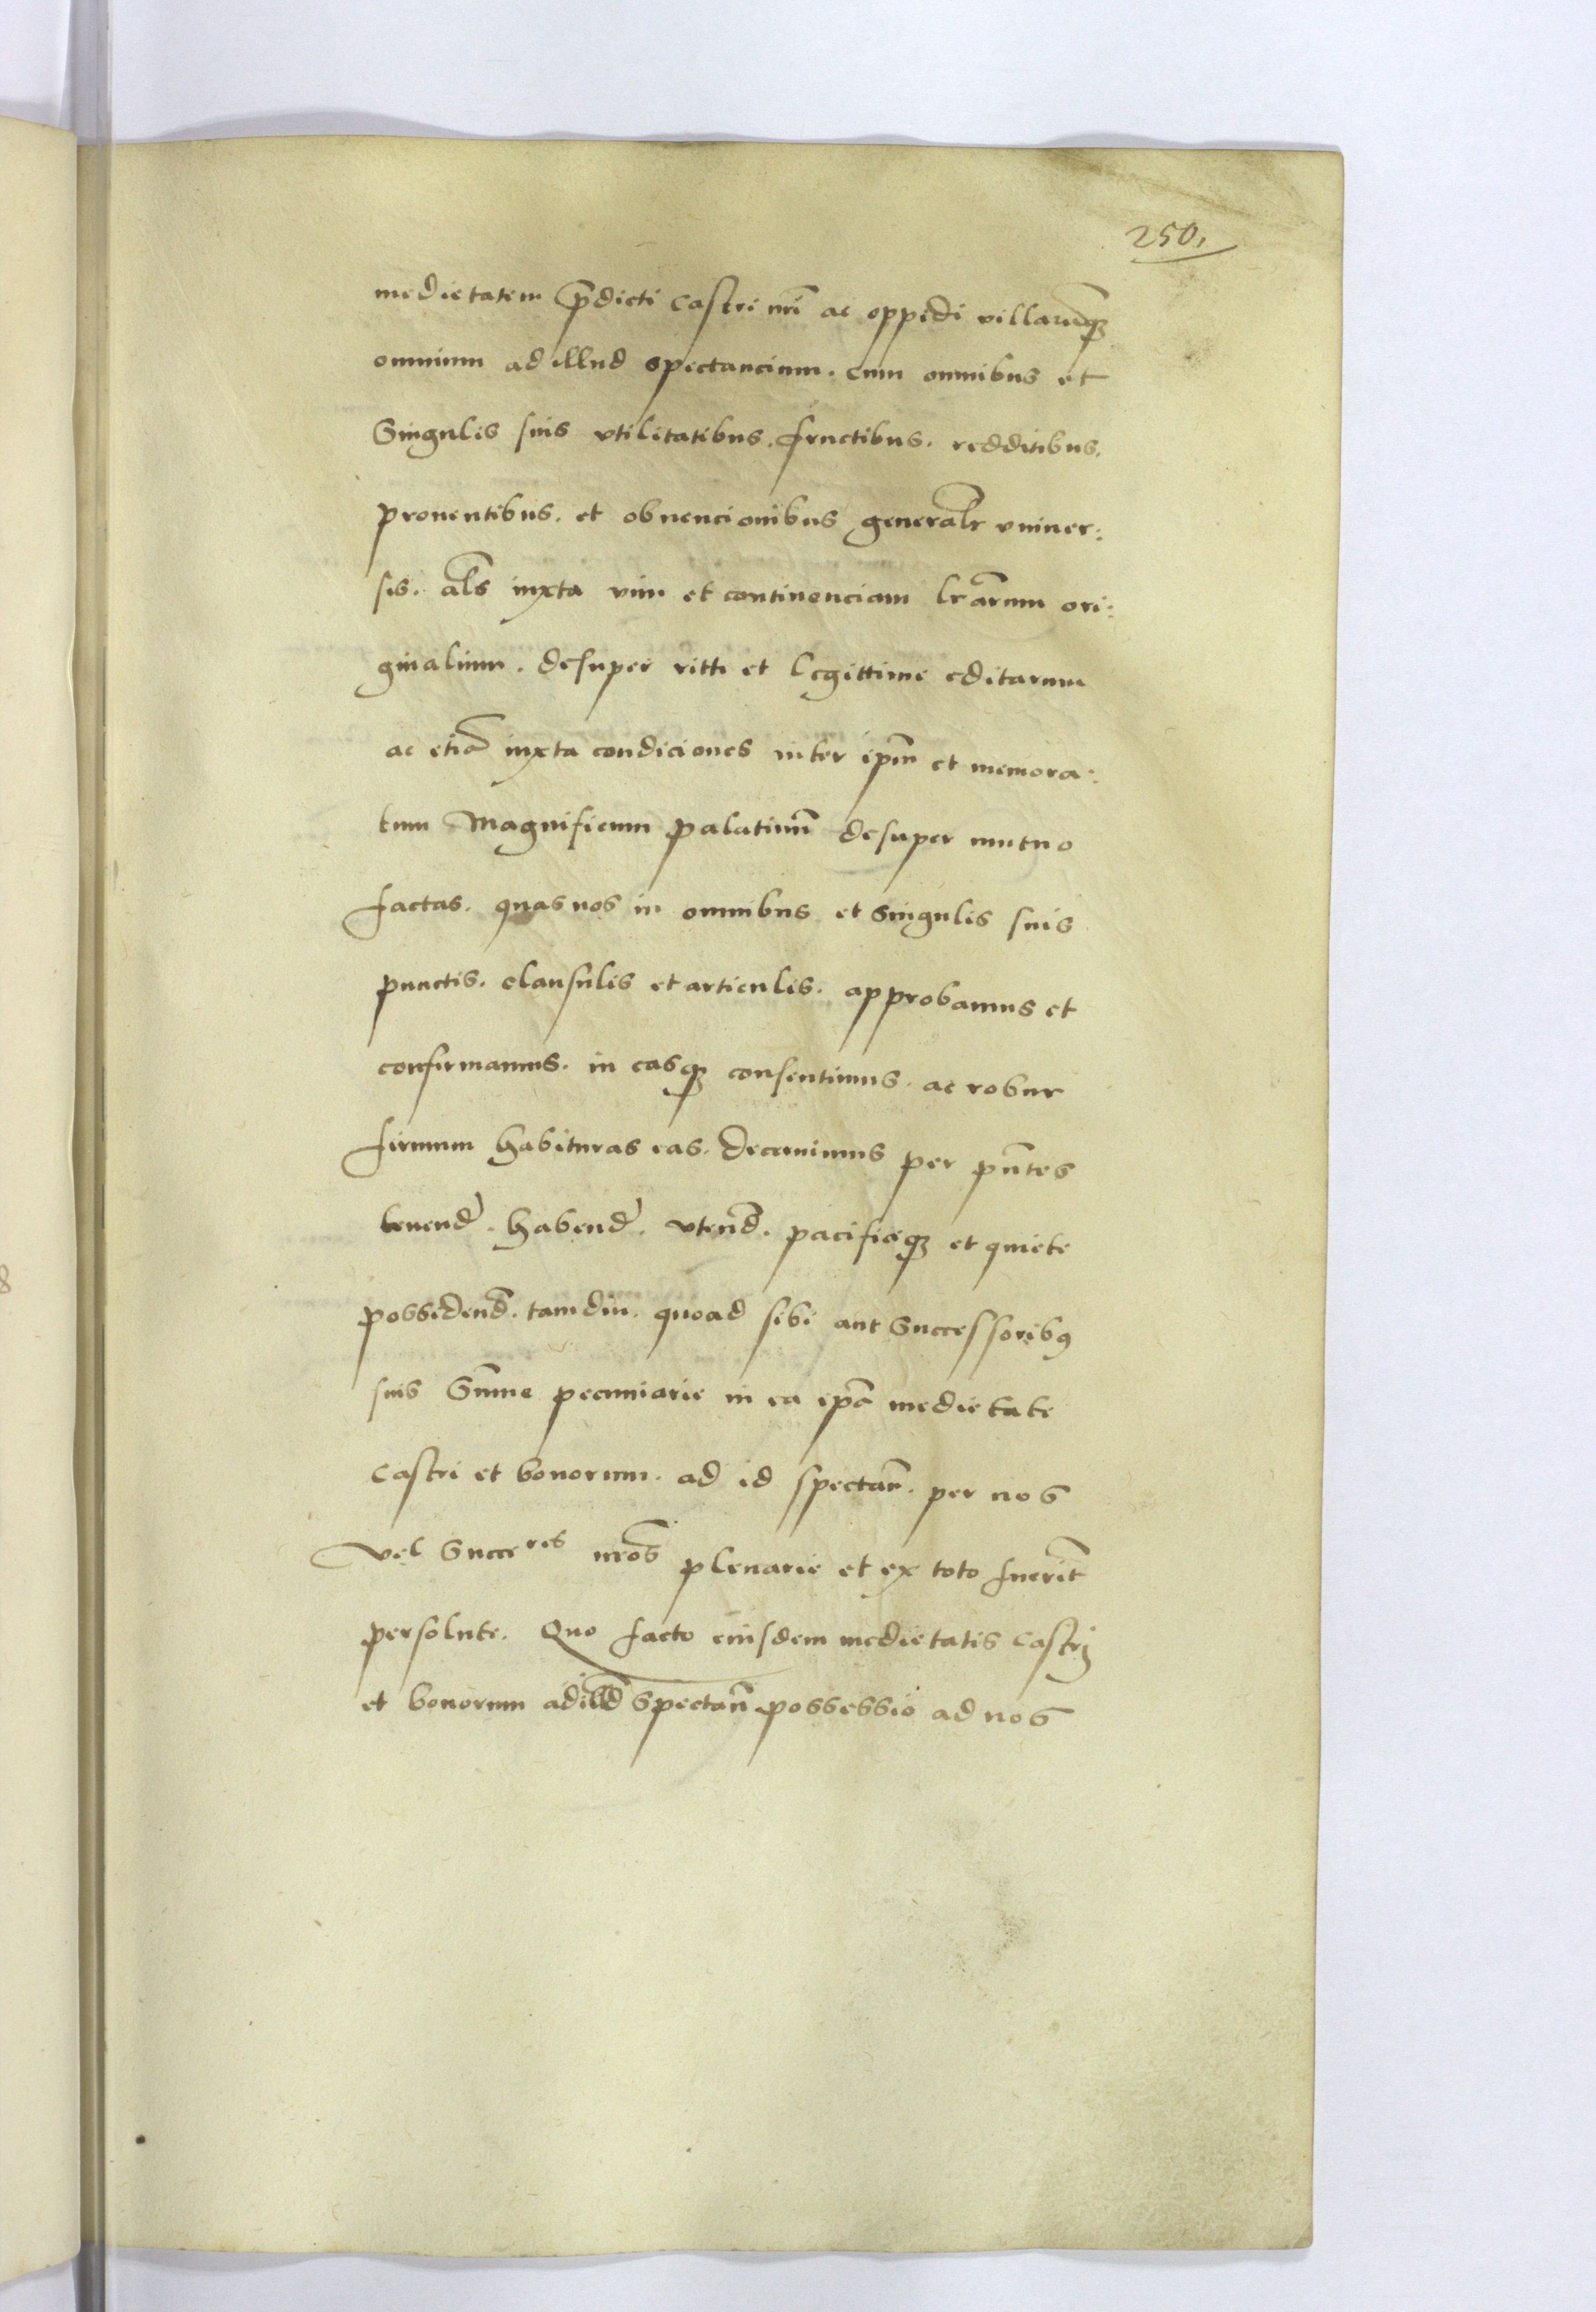 250,
medietatem p̃dicti Castri nr̃i ac oppidi villarũqꝫ
omnium ad illud spectancium. cum omnibus et
Singulis suis vtilitatibus. fructibus. redditibus.
prouentibus. et obuencionibus generalr̃ vniuer:
sis. al̃s iuxta vim et continenciam lr̃arum ori:
ginalium. desuper ritte et legittime editarum
ac etiã iuxta condiciones inter ip̃m et memora:
tum Magnificum palatinũ desuper mutuo
factas. quas nos in omnibus et singulis suis
punctis. clausulis et articulis. approbamus et
confirmamus. in easqꝫ consentimus. ac robur
firmum habituras eas. decernimus per pñtes
tenend̃. habend̃. vtend̃. pacificeqꝫ et quiete
possidend̃. tamdiu. quoad sibi aut Successoribꝰ
suis Sum̃e pecuniarie in ea ip̃a medietate
Castri et bonorum. ad id spectañ. per nos
vel Succeres nr̃os plenarie et ex toto fuerit̃
persolute. Quo facto eiusdem medietatis Castrj
et bonorum ad illd̃ Spectañ possessio ad nos
8